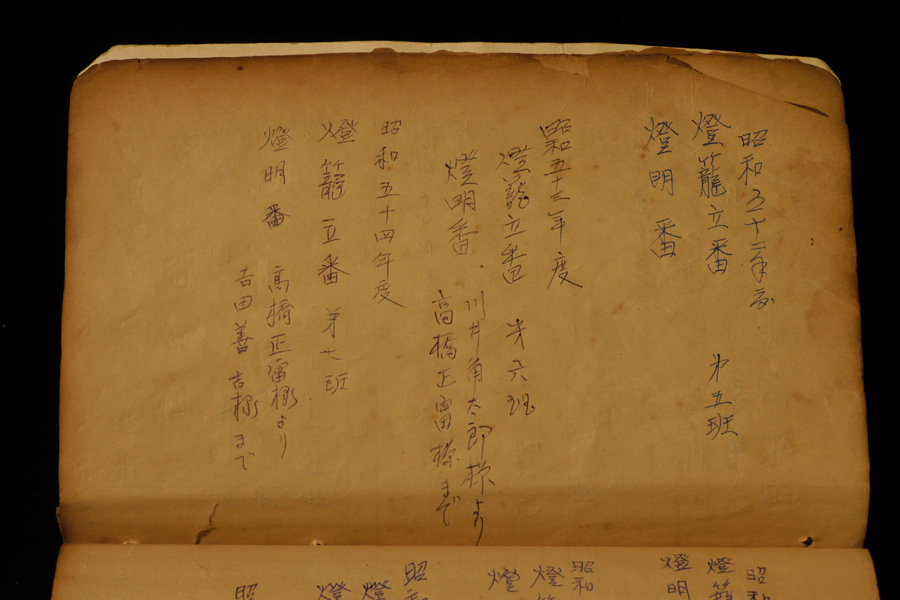 昭和五十二年度
燈籠立番 第五班
燈明番
昭和五十三年度
燈籠立番 第六班
燈明番 川井角太郎様より
高橋正富様まで
昭和五十四年度
燈籠立番 第七班
燈明番 高橋正富様より
吉田善吉様まで
昭和
燈籠
燈明
昭和
燈
燈
昭和
燈
燈
昭